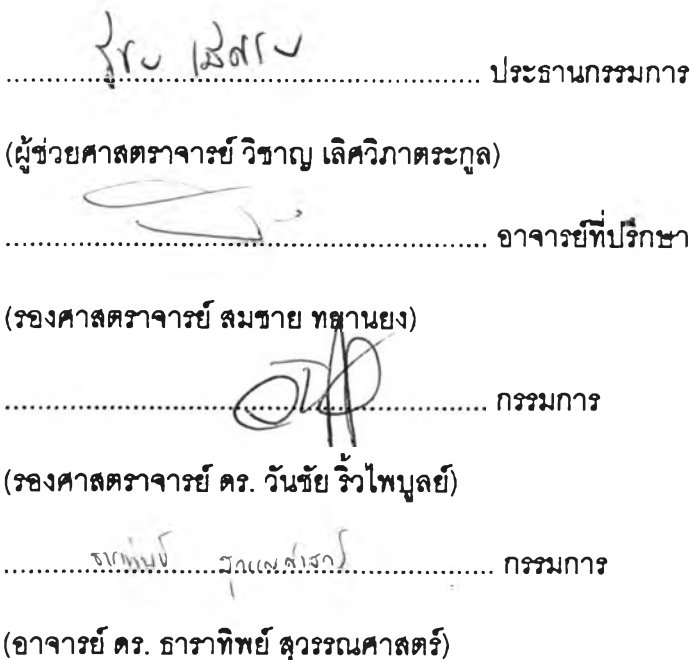 ........................................ ประธานกรรมการ
(ผู้ช่วยศาสตราจารย์ วิชาญ เลิศวิภาตระกูล)
........................................ อาจารย์ที่ปรึกษา
(รองศาสตราจารย์ สมชาย ทยานยง)
........................................ กรรมการ
(รองศาสตราจารย์ ดร. วันชัย ริ้วไพบูลย์)
ธาราทิพย์ สุวรรณศาสตร์ กรรมการ
(อาจารย์ ดร. ธาราทิพย์ สุวรรณศาสตร์)